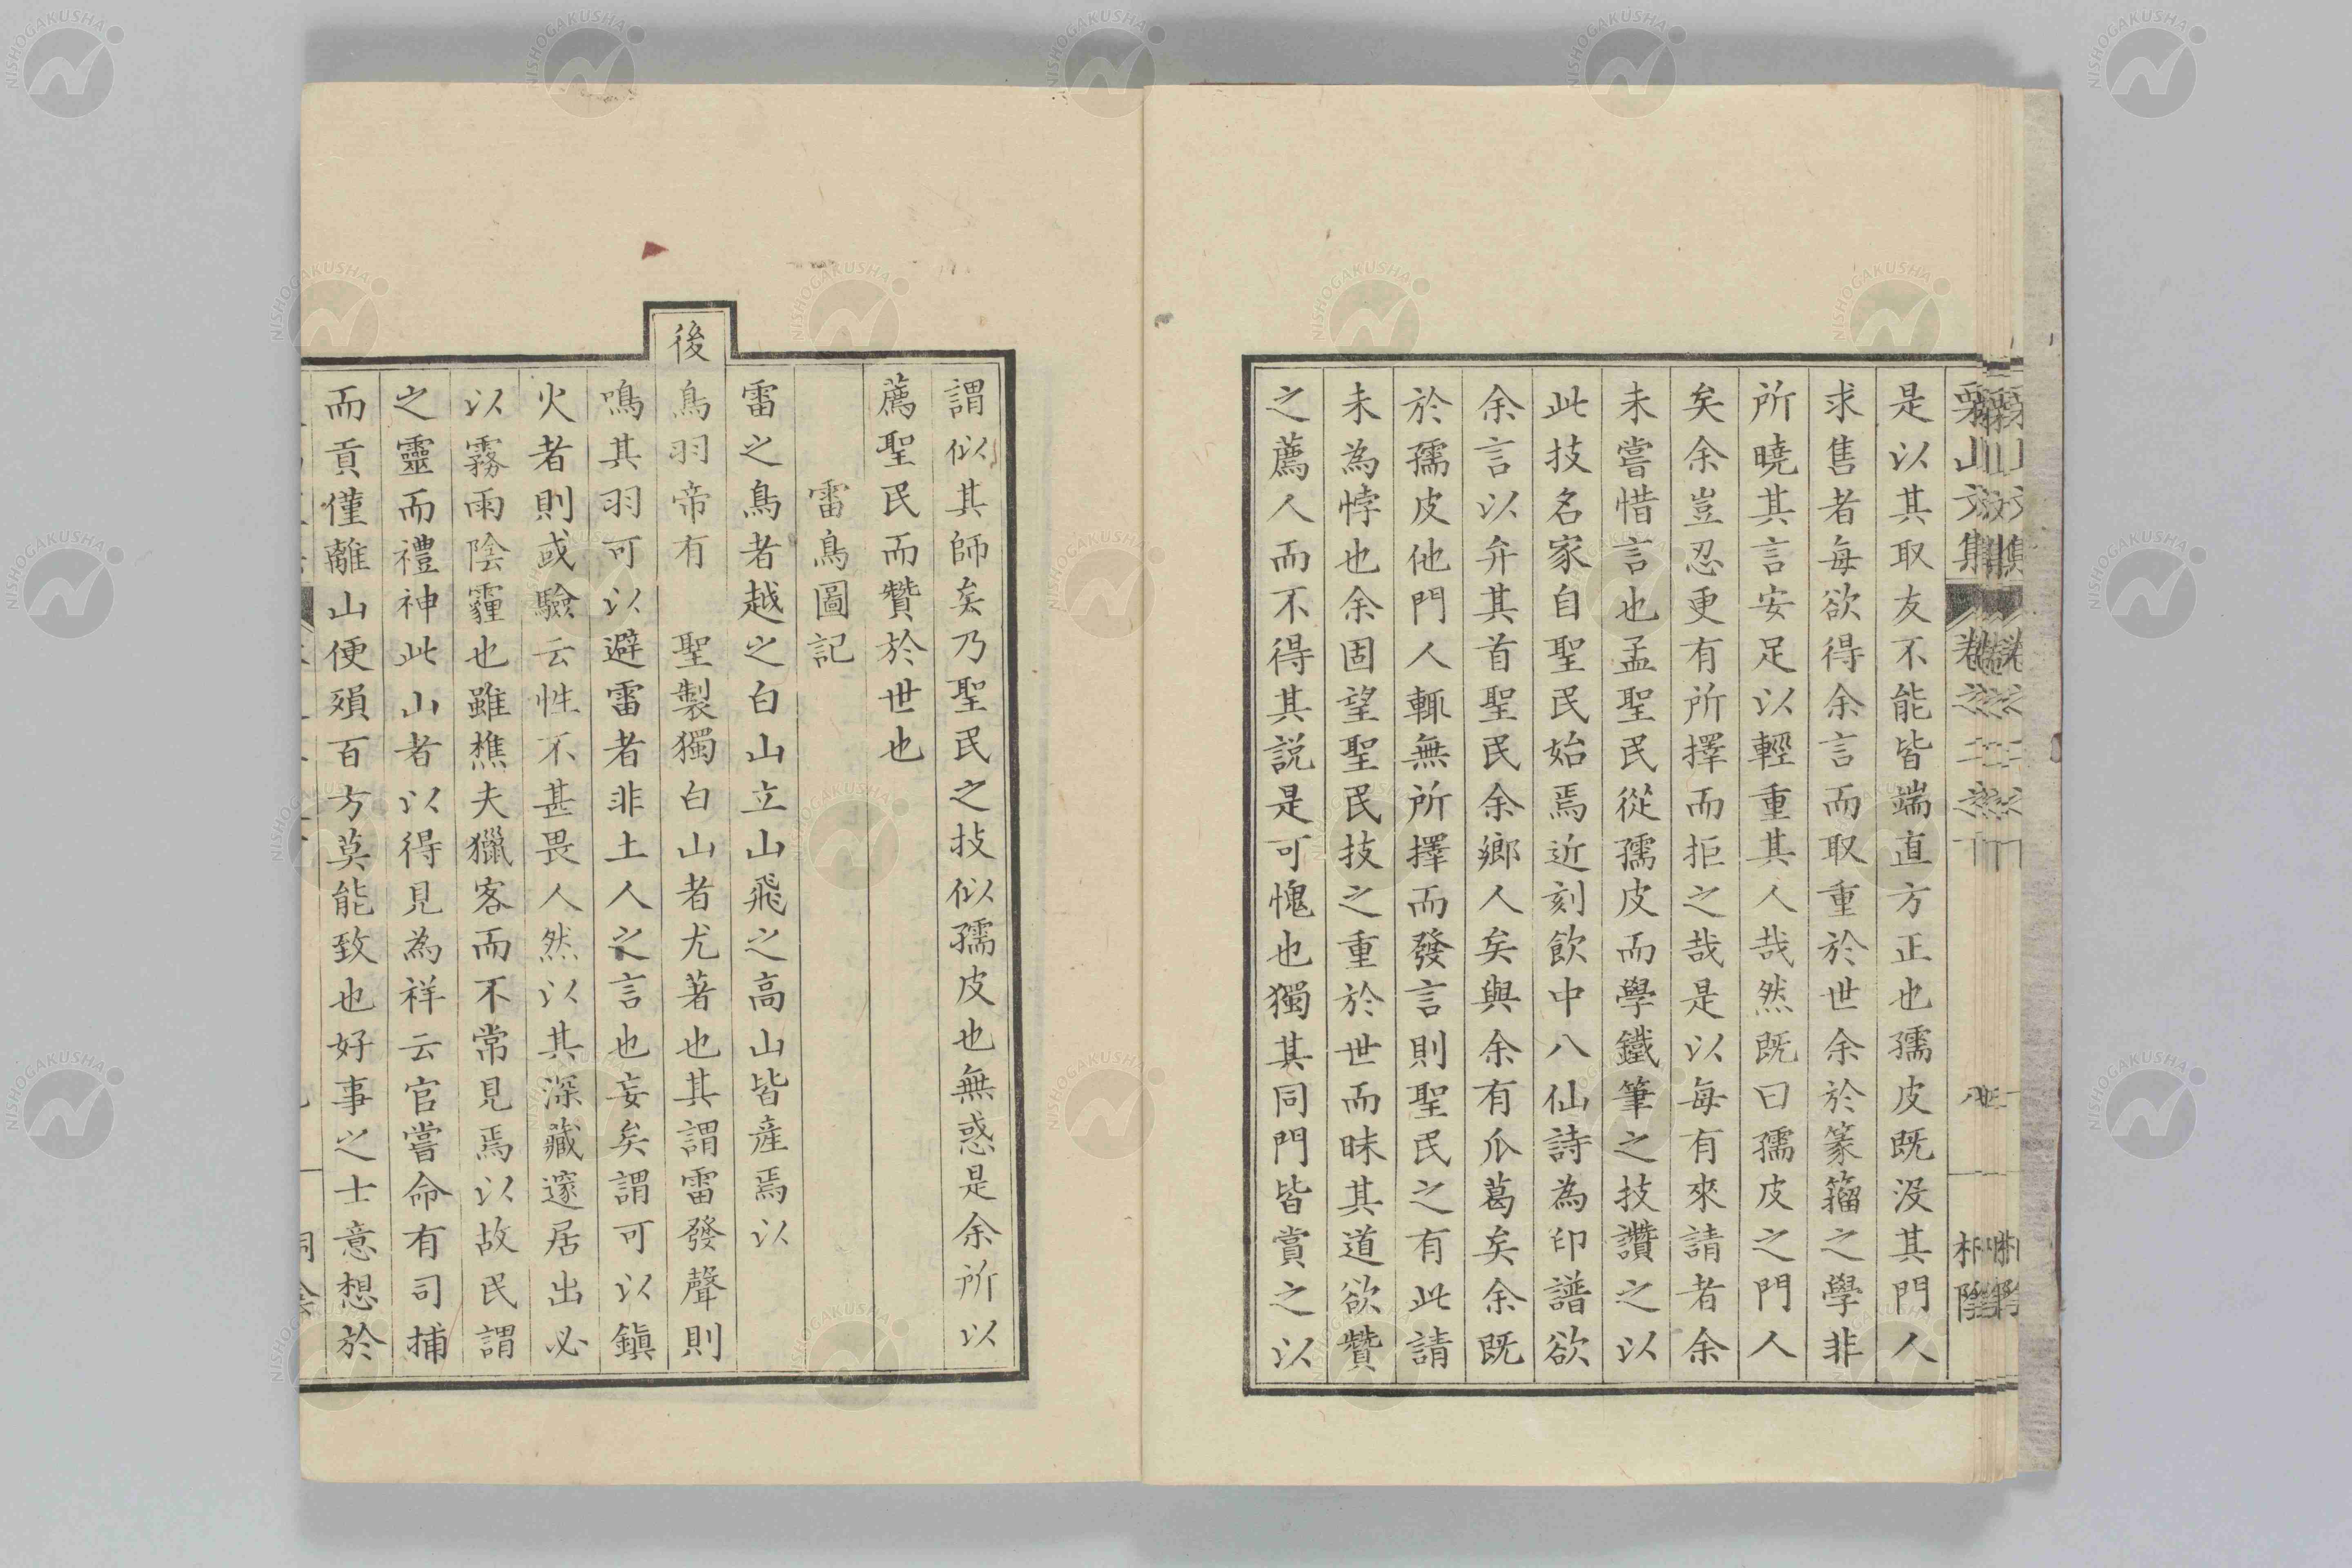 栗山文集 卷之二之下
是以其取友不能皆端直方正也孺皮既沒其門人
求售者每欲得余言而取重於世余於篆籀之學非
所曉其言安足以輕重其人哉然既曰孺皮之門人
矣余豈忍更有所擇而拒之哉是以每有來請者余
未嘗惜言也孟聖民從孺皮而學鐵筆之技讚之以
此技名家自聖民始焉近刻飲中八仙詩為印譜欲
余言以弁其首聖民余鄉人矣與余有瓜葛矣余既
於孺皮他門人輒無所擇而發言則聖民之有此請
未為悖也余固望聖民技之重於世而昧其道欲贊
之薦人而不得其説是可愧也獨其同門皆賞之以
謂似其師矣乃聖民之技似孺皮也無惑是余所以
薦聖民而贊於世也
雷鳥圖記
雷之鳥者越之白山立山飛之高山皆産焉以
後鳥羽帝有 聖製獨白山者尤著也其謂雷發聲則
鳴其羽可以避雷者非土人之言也妄矣謂可以鎭
火者則或驗云性不甚畏人然以其深藏邃居出必
以霧雨陰霾也雖樵夫獵客而不常見焉以故民謂
之靈而禮神此山者以得見為祥云官嘗命有司捕
而貢僅離山便殞百方莫能致也好事之士意想於
NISHOGAKUSHA